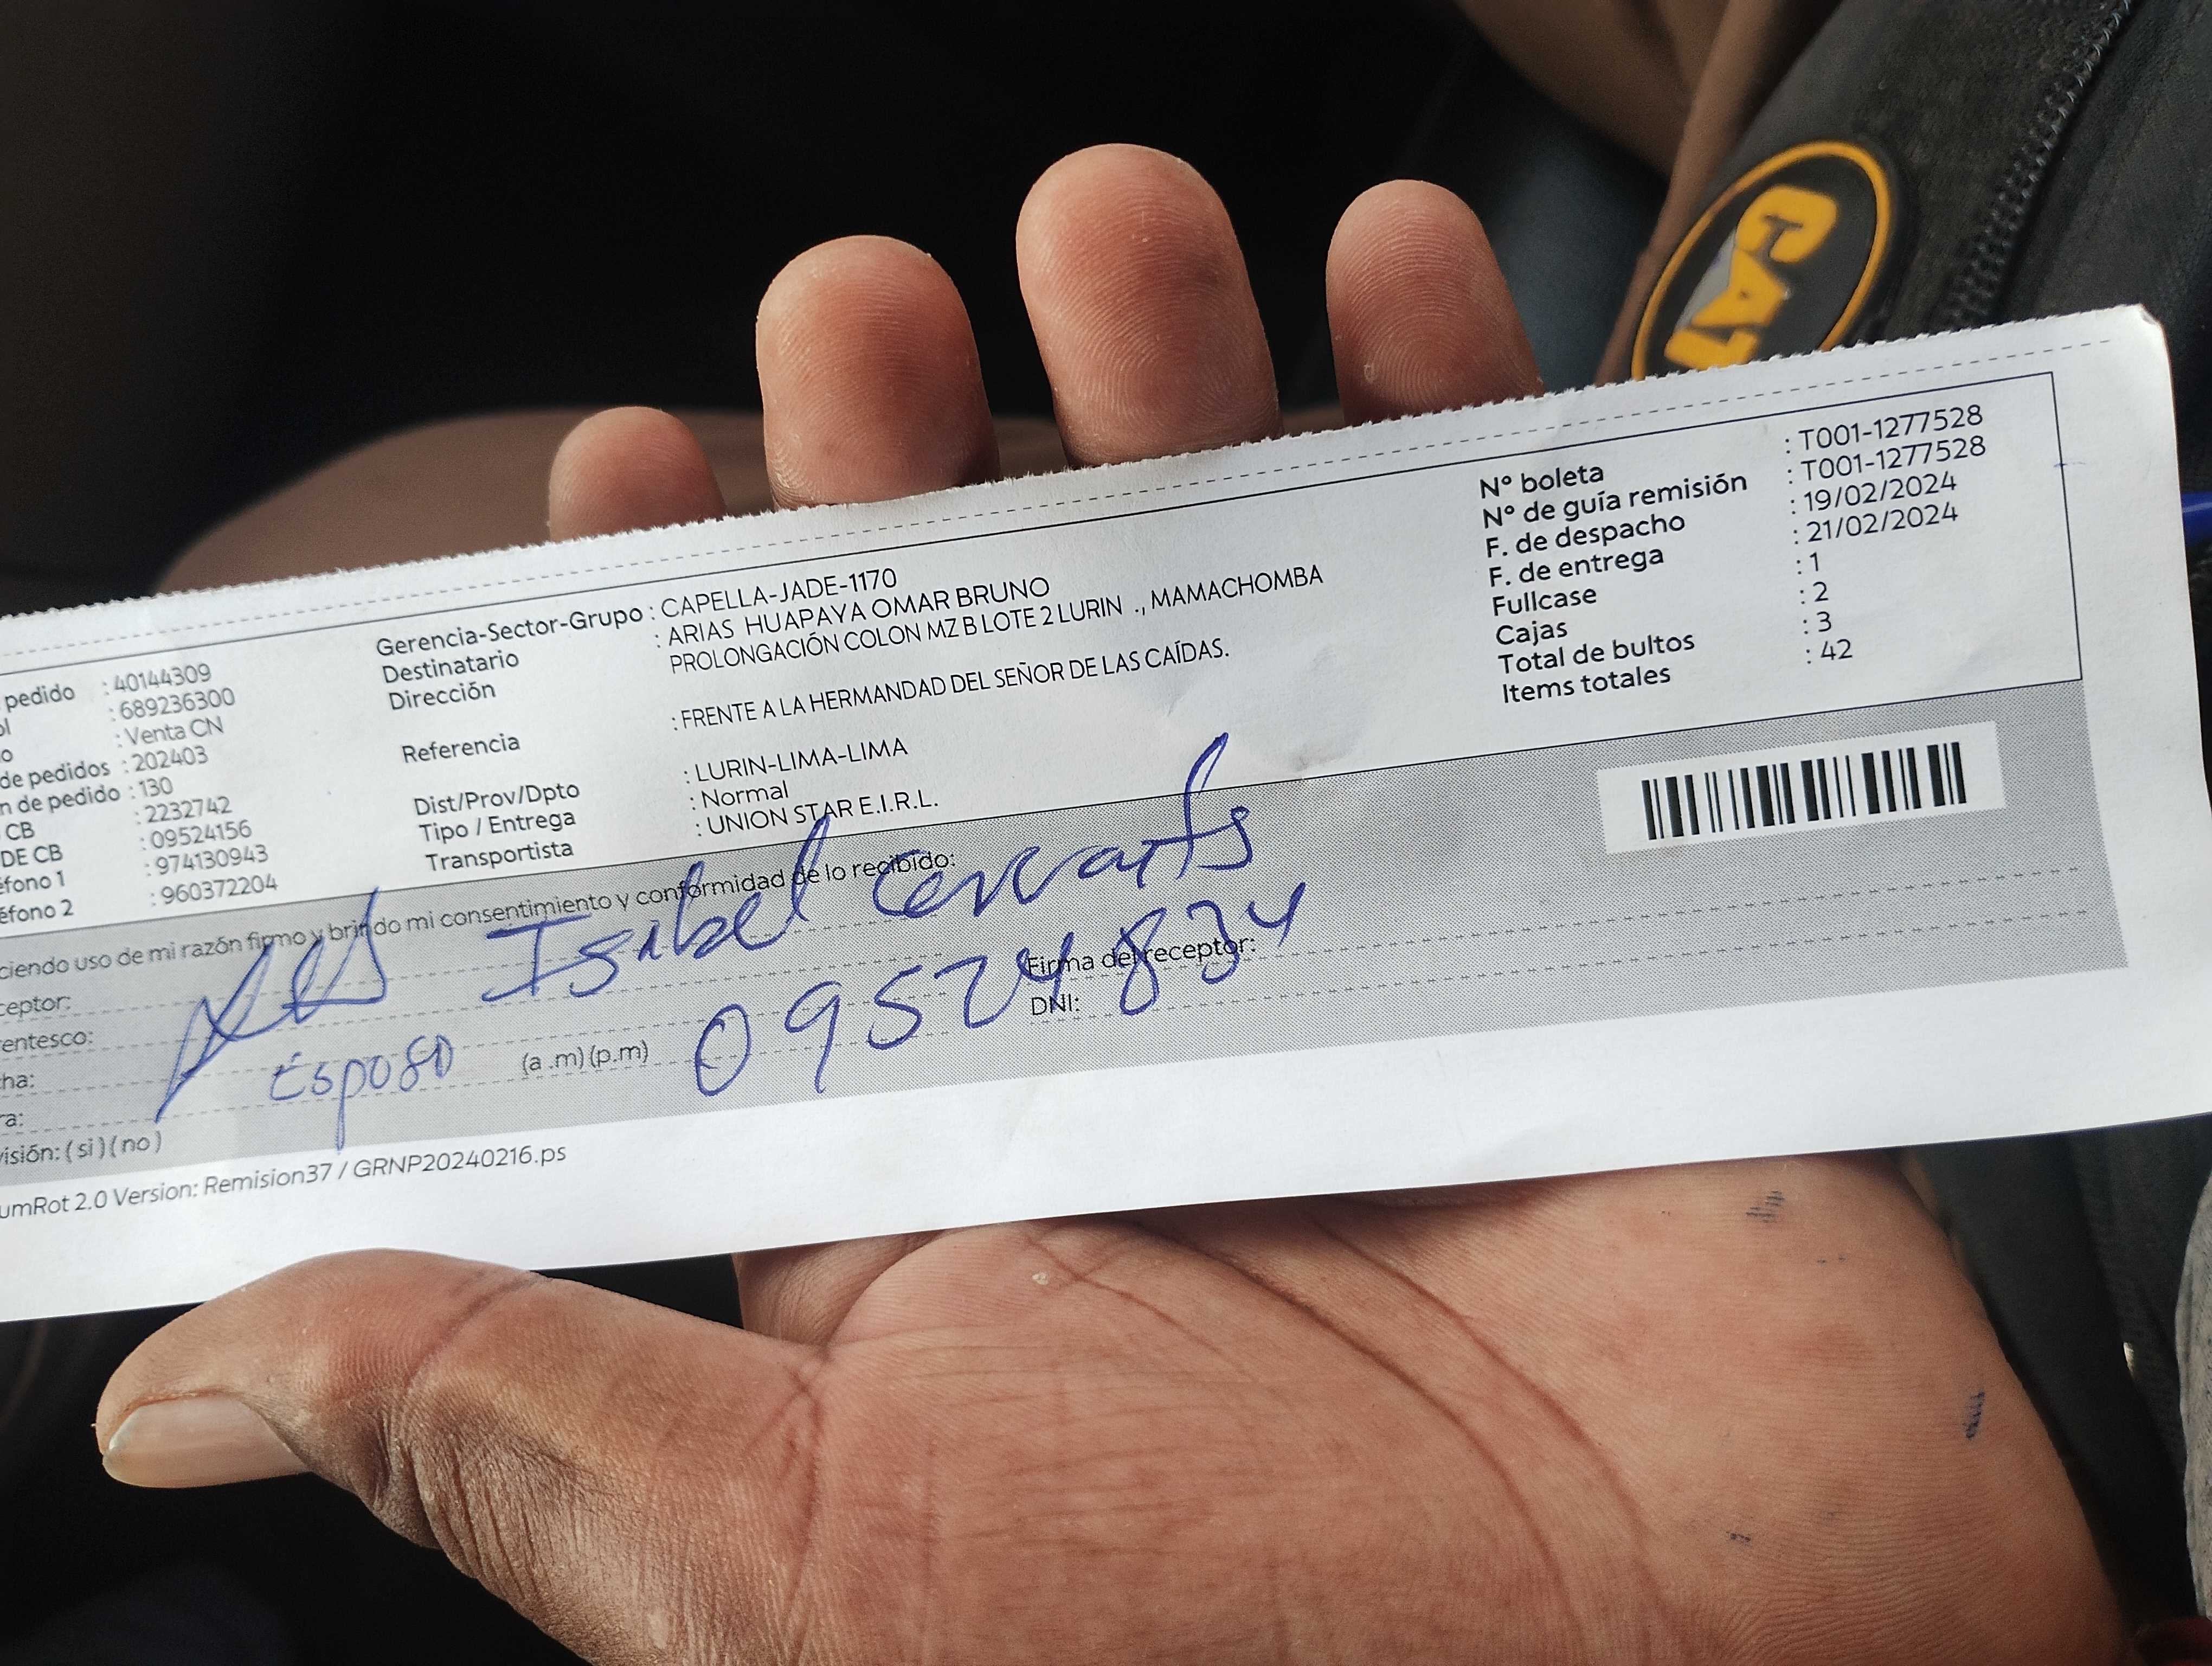 CAT
pedido : 40144309
: 689236300
: Venta CN
de pedidos : 202403
n de pedido : 130
CB : 2232742
DE CB : 09524156
éfono 1 : 974130943
éfono 2 : 960372204
Gerencia-Sector-Grupo : CAPELLA-JADE-1170
Destinatario : ARIAS HUAPAYA OMAR BRUNO
Dirección PROLONGACIÓN COLON MZ B LOTE 2 LURIN ., MAMACHOMBA
Referencia : FRENTE A LA HERMANDAD DEL SEÑOR DE LAS CAÍDAS.
Dist/Prov/Dpto : LURIN-LIMA-LIMA
Tipo / Entrega : Normal
Transportista : UNION STAR E.I.R.L.
N° boleta : T001-1277528
N° de guía remisión : T001-1277528
F. de despacho : 19/02/2024
F. de entrega : 21/02/2024
Fullcase : 1
Cajas : 2
Total de bultos : 3
Items totales : 42
ciendo uso de mi razón firmo y brindo mi consentimiento y conformidad de lo recibido:
ceptor: Isabel
entesco:
Firma del receptor:
cha: Esposo
DNI: 09524834
ra: (a .m) (p.m)
visión: ( si ) ( no )
umRot 2.0 Version: Remision37 / GRNP20240216.ps